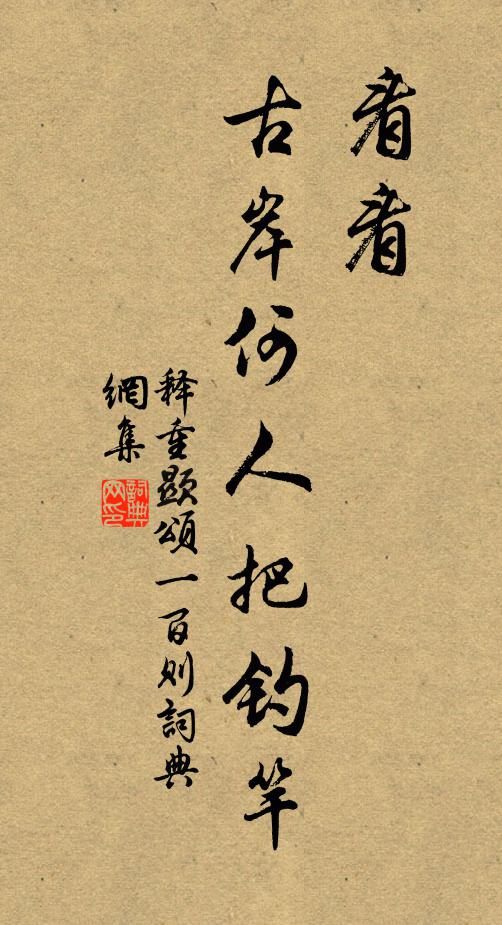 看看
古岸何人把钓竿
释重顯頌一百则詞典
網集
詞典
网印